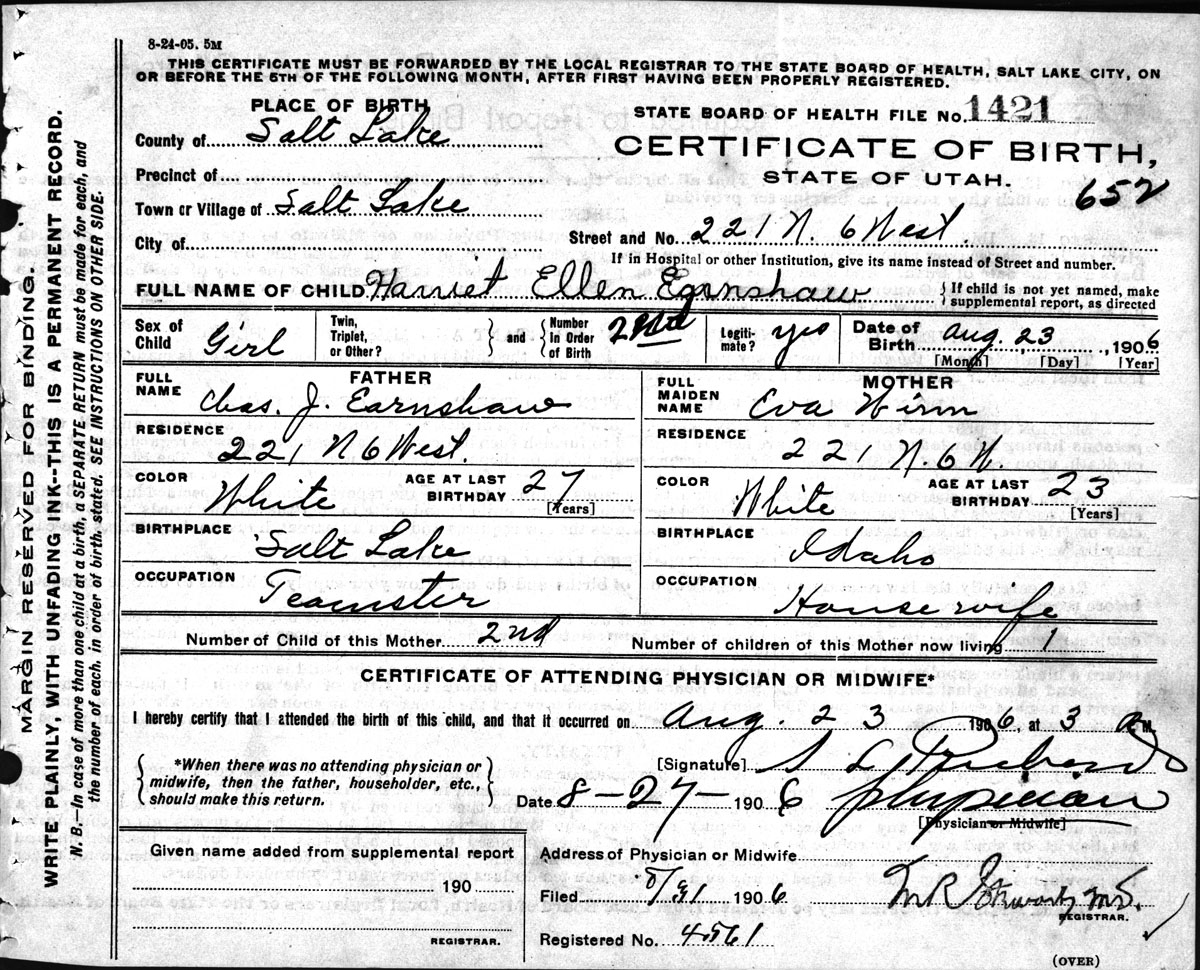 8-24-05. 5M
THIS CERTIFICATE MUST BE FORWARDED BY THE LOCAL REGISTRAR TO THE STATE BOARD OF HEALTH, SALT LAKE CITY, ON
OR BEFORE THE 5TH OF THE FOLLOWING MONTH, AFTER FIRST HAVING BEEN PROPERLY REGISTERED.
MARGIN RESERVED FOR BINDING.
WRITE PLAINLY WITH UNFADING INK--THIS IS A PERMANENT RECORD.
N. B.—In case of more than one child at a birth, a SEPARATE RETURN must be made for each, and
the number of each, in order of birth, stated. SEE INSTRUCTIONS ON OTHER SIDE.
PLACE OF BIRTH,
County of Salt Lake
Precinct of
Town or Village of Salt Lake
City of
STATE BOARD OF HEALTH FILE No. 1421
CERTIFICATE OF BIRTH,
STATE OF UTAH.
652
Street and No. 221 N. 6 West.
If in Hospital or other Institution, give its name instead of Street and number.
FULL NAME OF CHILD Harriet Ellen Earnshaw { If child is not yet named, make supplemental report, as directed
Sex of Child Girl Twin, Triplet, or Other? } and { Number in Order of Birth 2nd Legiti-mate? yes Date of Birth Aug. 23, 1906
[Month] [Day] [Year]
FATHER
FULL NAME Chas. J. Earnshaw
RESIDENCE 221 N 6 West.
COLOR White AGE AT LAST BIRTHDAY 27 [Years]
BIRTHPLACE Salt Lake
OCCUPATION Teamster
MOTHER
FULL MAIDEN NAME Eva Winn
RESIDENCE 221 N. 6 W.
COLOR White AGE AT LAST BIRTHDAY 23 [Years]
BIRTHPLACE Idaho
OCCUPATION House wife
Number of Child of this Mother 2nd Number of children of this Mother now living 1
CERTIFICATE OF ATTENDING PHYSICIAN OR MIDWIFE*
I hereby certify that I attended the birth of this child, and that it occurred on Aug. 23 1906, at 3 M.
*When there was no attending physician or
midwife, then the father, householder, etc.,
should make this return.
[Signature] S L Richards
Date 8-27- 1906 Physician
[Physician or Midwife]
Given name added from supplemental report
190
REGISTRAR.
Address of Physician or Midwife
Filed 8/31 1906 M.D.
REGISTRAR.
Registered No. 4561
(OVER)